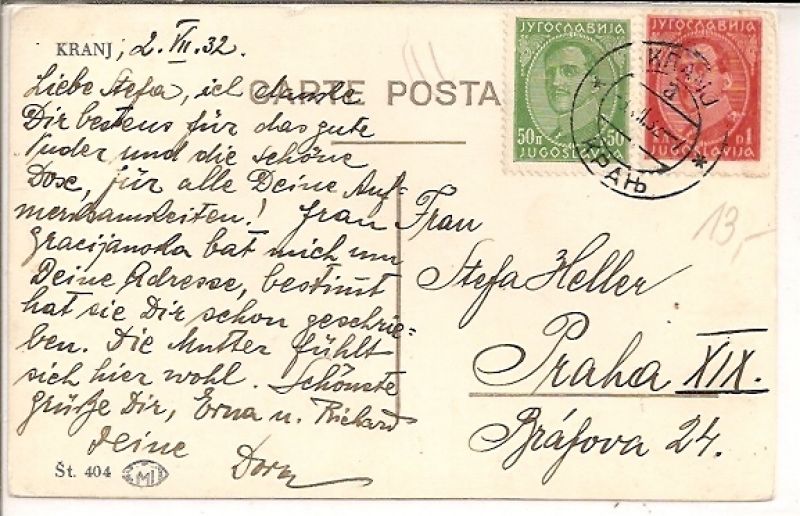 KRANJ, 2. VII. 32.
CARTE POSTA
Liebe Stefa, ich danke
Dir bestens für das gute
und die schöne
Dose, für alle Deine Auf-
merksamkeiten! Frau
Gracijanova bat mich um
Deine Adresse, bestimt
hat sie Dir schon geschrie-
ben. Die Mutter fühlt
sich hier wohl. Schönste
Grüße Dir, Erna u. Richard
Deine
St. 404
MI
ЈУГОСЛАВИЈА
50п 50
JUGOSLAVIJA
ЈУГОСЛАВИЈА
1
JUGOSLAVIJA
KRANJ
a
КРАЊ
13,-
Frau
Stefa Heller
Praha XIX.
24.